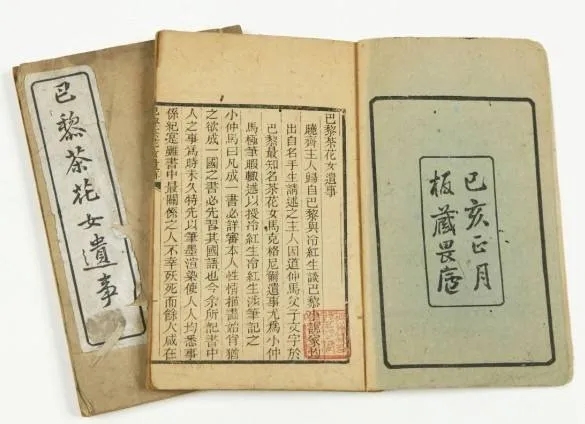 己亥正月
板藏畏廬
巴黎茶花女遺事
曉齋主人歸自巴黎與冷紅生談巴黎小說家均
出自名手生請述之主人因道仲馬父子文字於
巴黎最知名茶花女馬克格尼爾遺事尤爲小仲
馬極筆暇輒述以授冷紅生冷紅生涉筆記之
小仲馬曰凡成一書必詳審本人性情描畫始肖猶
之欲成一國之書必先習其國語也今余所記書中
人之事爲時未久特先以筆墨渲染使人人均悉事
係紀實雖書中最關係之人不幸殀死而餘人咸在
巴黎茶花女遺事